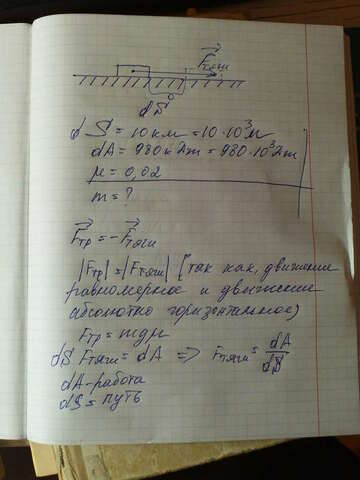 F⃗тяги
dS⃗
dS = 10 км = 10·10³м
dA = 980 кДж = 980·10³Дж
μ = 0,02
m = ?
F⃗тр = -F⃗тяги
|Fтр| = |Fтяги| (так как, движение
равномерное и движение
абсолютно горизонтальное)
Fтр = mgμ
dS Fтяги = dA => Fтяги = dA/dS
dA - работа
dS = путь